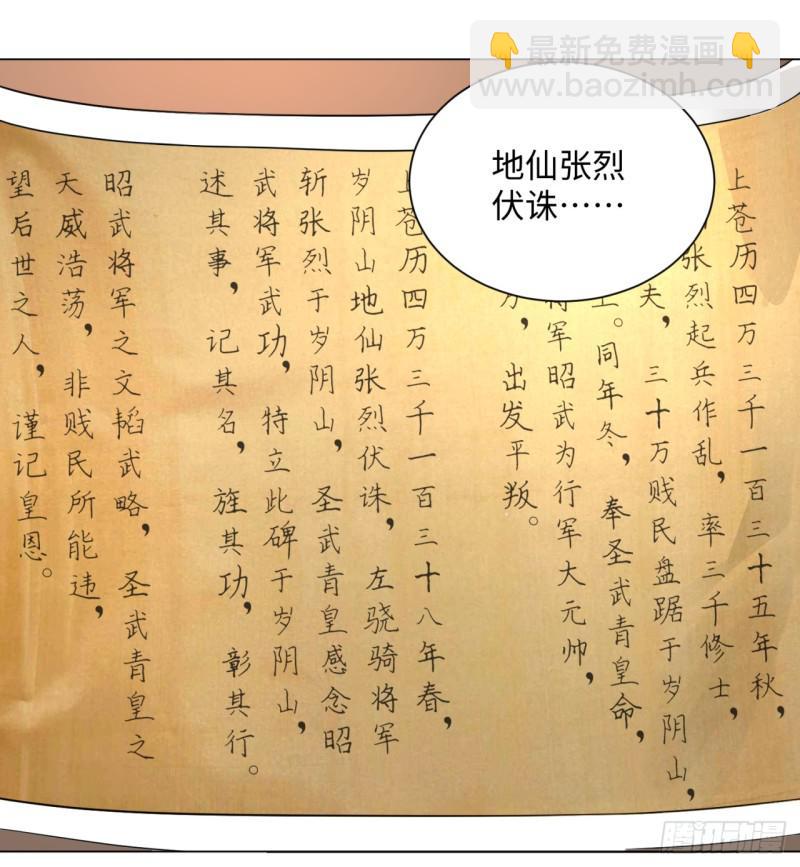 最新免费漫画
www.baozimh.com
地仙张烈
伏诛……
上苍历四万三千一百三十五年秋，
张烈起兵作乱，率三千修士，
夫，三十万贱民盘踞于岁阴山，
。同年冬，奉圣武青皇命，
将军昭武为行军大元帅，
万，出发平叛。
上苍历四万三千一百三十八年春，
岁阴山地仙张烈伏诛，左骁骑将军
斩张烈于岁阴山，圣武青皇感念昭
武将军武功，特立此碑于岁阴山，
述其事，记其名，旌其功，彰其行。
昭武将军之文韬武略，圣武青皇之
天威浩荡，非贱民所能违，
望后世之人，谨记皇恩。
腾讯动漫